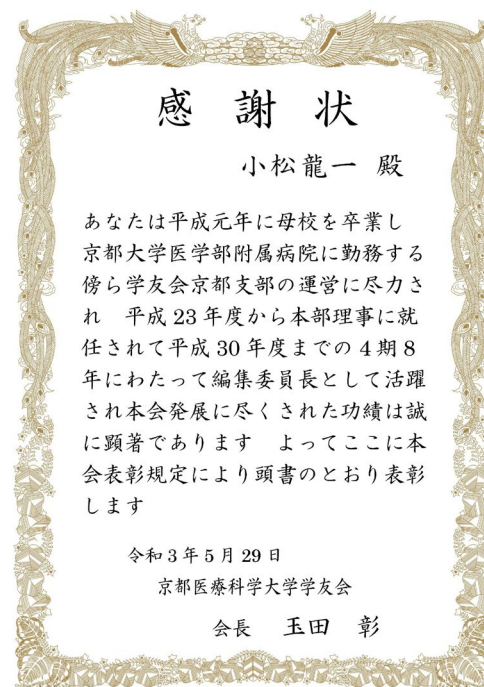 感謝状
小松龍一 殿
あなたは平成元年に母校を卒業し
京都大学医学部附属病院に勤務する
傍ら学友会京都支部の運営に尽力さ
れ　平成 23 年度から本部理事に就
任されて平成 30 年度までの 4 期 8
年にわたって編集委員長として活躍
され本会発展に尽くされた功績は誠
に顕著であります　よってここに本
会表彰規定により頭書のとおり表彰
します
令和 3 年 5 月 29 日
京都医療科学大学学友会
会長　玉田　彰